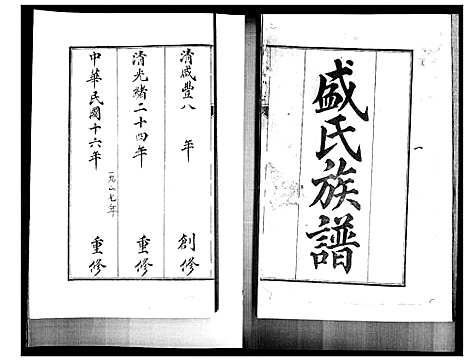 盛氏族譜
清咸豐八年 創修
清光緒二十四年 重修
中華民國十六年 重修
一九二七年